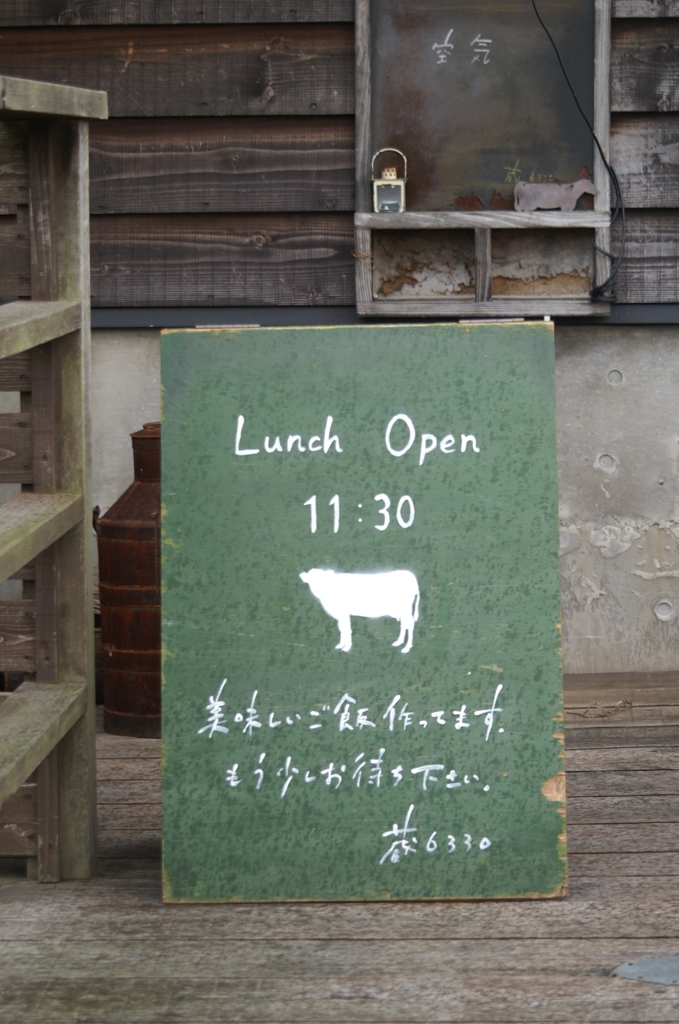 空気
蔵6330
Lunch Open
11:30
美味しいご飯作ってます。
もう少しお待ち下さい。
蔵6330